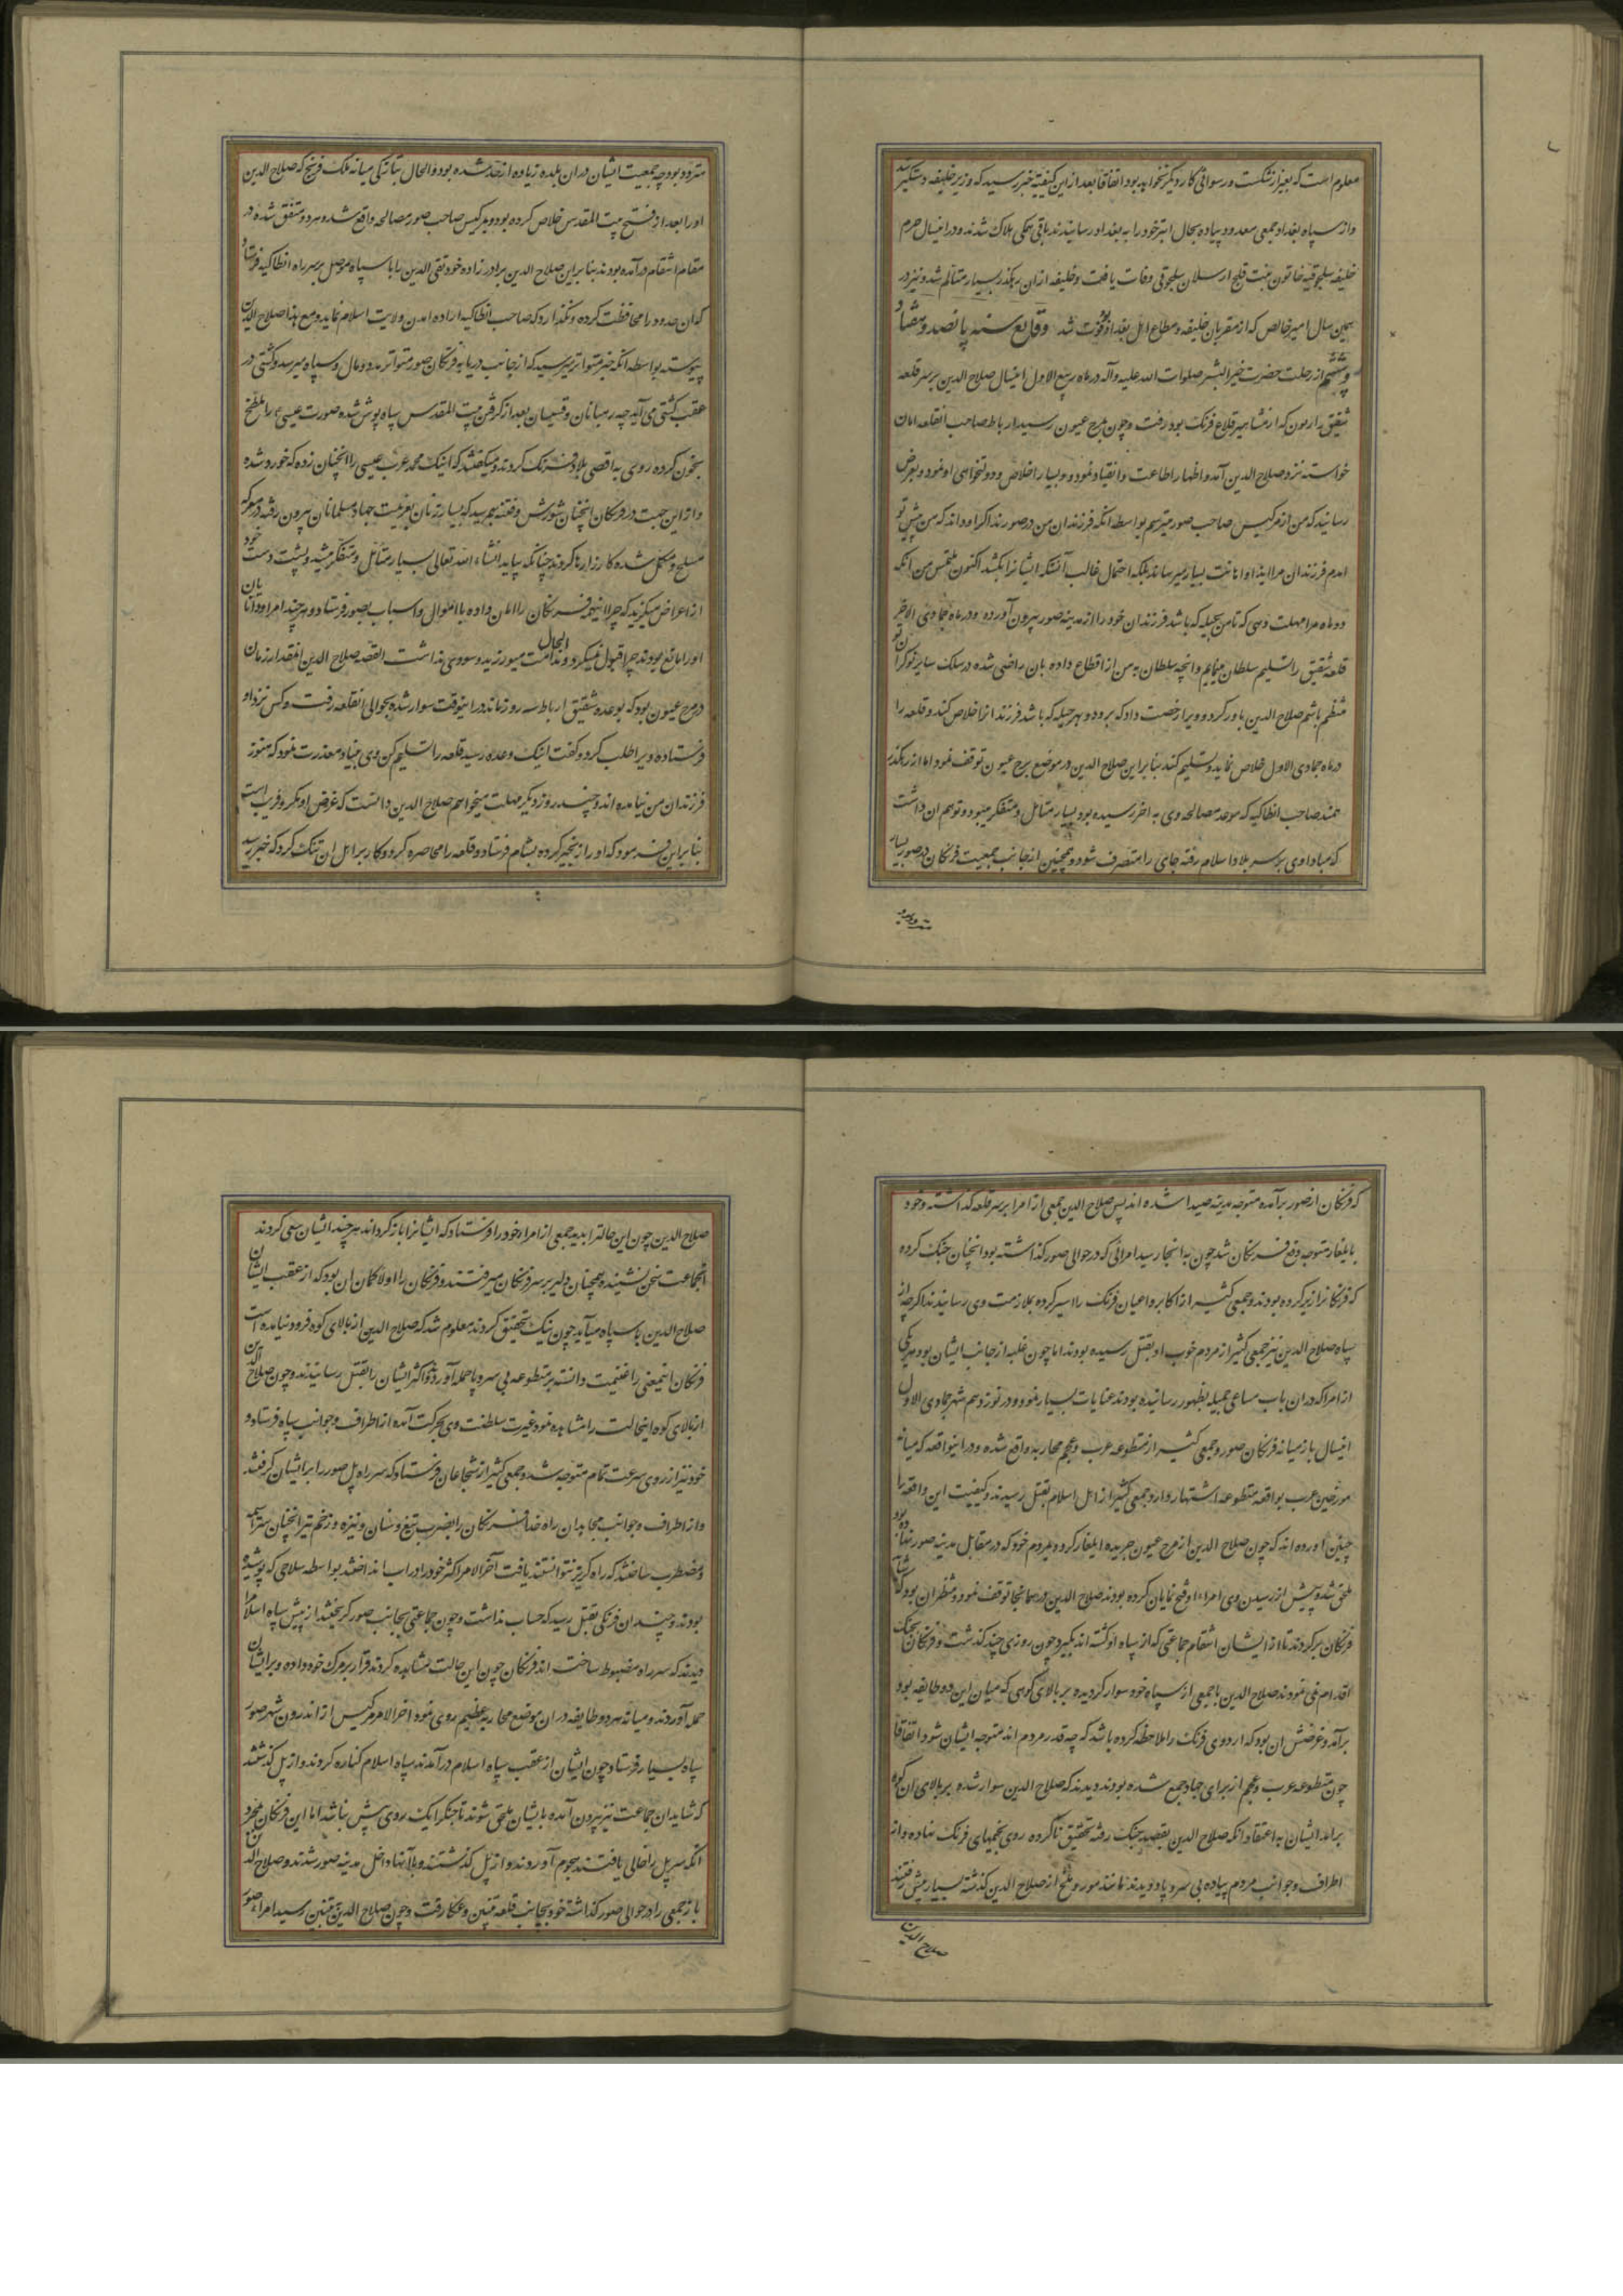 معلوم است که بغیر از شکست و رسوائی کار دیگر نخواهد بود اتفاقا بعد از این کیفیته خبر رسید که وزیر خلیفه دستگیر شد
و از سپاه بغداد جمعی معدود پیاده بحال ابتر خود را به بغداد رسانیدند باقی همکی هلاک شدند و در اینسال حرم
خلیفه سلجوقیه خاتون بنت قلج ارسلان سلجوقی وفات یافت و خلیفه از ان رهکذر بسیار متالم شد و نیز در
همین سال امیر خالص که از مقربان خلیفه و مطاع اهل بغداد بود فوت شد وقایع سنه پانصد و هفتاد
و ششم از رحلت حضرت خیر البشر صلوات الله علیه و آله در ماه ربیع الاول اینسال صلاح الدین بر سر قلعه
شقیق ارمون که از مشاهیر قلاع فرنک بود رفت و چون بمرج عیون رسید ارباط صاحب انقلعه امان
خواسته نزد صلاح الدین آمد و اظهار اطاعت و انقیاد نمود و بسیار اخلاص و دولتخواهی او نمود و بعرض
رسانید که من از مرکیس صاحب صور میترسم بواسطه انکه فرزندان من در صورند اکر او داند که من پیش تو
امدم فرزندان مرا ایذا و اهانت بسیار میرساند بلکه احتمال غالب آنستکه ایشانرا بکشد اکنون ملتمس من انکه
دو ماه مرا مهلت دهی که تا من بحیله که باشد فرزندان خود را از مدینه صور بیرون آورده و در ماه جمادی الاخر
قلعه شقیق را تسلیم سلطان مینمایم و انچه سلطان به من از اقطاع داده بان راضی شده در سلک سایر نوکران تو
منتظم باشم صلاح الدین باور کرد و ویرا رخصت داد که برود و بهر حیله که باشد فرزندانرا خلاص کند و قلعه را
در ماه جمادی الاول خلاص نماید و تسلیم کند بنابراین صلاح الدین در موضع برج عیون توقف نمود اما از رهکذر
تمند صاحب انطاکیه که موعد مصالحه وی به اخر رسیده بود بسیار متامل و متفکر میبود و توهم ان داشت
که مبادا وی بر سر بلاد اسلام رفته جای را متصرف شود و همچنین از جانب جمعیت فرنکان در صور بسیار
متردد بود
متردد بود چه جمعیت ایشان در ان بلده زیاده از حد شده بود و الحال بتازکی میانه ملک فرنج که صلاح الدین
او را بعد از فتح بیت المقدس خلاص کرده بود و مرکیس صاحب صور مصالحه واقع شد و هر دو متفق شده در
مقام انتقام در آمده بودند بنابراین صلاح الدین برادر زاده خود تقی الدین را با سپاه موصل بر سر راه انطاکیه فرستاد
که ان حدود را محافظت کرده و نکذارد که صاحب انطاکیه اراده امدن ولایت اسلام نماید و مع هذا صلاح الدین
پیوسته بواسطه انکه خبر متواتر میرسید که از جانب دریا به فرنکان صور متواتر مدد و مال و سپاه میرسد و کشتی در
عقب کشتی می آید چه رهبانان و قسیسان بعد از کرفتن بیت المقدس سیاه پوش شده صورت عیسی را ملطخ
بخون کرده روی به اقصی بلاد فرنک کردند و میکفتند که اینک محمد عرب عیسی را انچنان زده که خورد شده
و از این جهت در فرنکان انچنان شورش و فتنه بهم رسید که بسیار زنان بعزیمت جهاد مسلمانان بیرون رفته در معرکه
مسلح و مکمل شده کارزارها کردند چنانکه بیاید انشاء الله تعالی بسیار متامل و متفکر میشد و پشت دست خود
از اعراض میکزید که چرا اینهمه فرنکان را امان داده با اموال و اسباب بصور فرستاد و هر چند امرا و دانایان
او را مانع میبودند چرا قبول نمیکرد و الحال ندامت میورزید و سودی نداشت القصه صلاح الدین انمقدار زمان
در مرج عیون بود که بوعده شقیق ارباط سه روز ماند در اینوقت سوار شده بحوالی انقلعه رفت و کس نزد او
فرستاده ویرا طلب کرد و کفت اینک وعده رسید قلعه را تسلیم کن وی بنیاد معذرت نمود که هنوز
فرزندان من نیامده اند و چند روز دیکر مهلت میخواهم صلاح الدین دانست که غرض او مکر و فریب است
بنابراین فرمود که او را زنجیر کرده بشام فرستاد و قلعه را محاصره کرد و کار بر اهل ان تنک کرد که خبر رسید
که فرنکان از صور برآمده متوجه مدینه صیدا شده اند پس صلاح الدین جمعی از امرا بر سر قلعه کذاشته و خود
بایلغار متوجه دفع فرنکان شد چون به انجا رسید امرائی که در حوالی صور کذاشته بود انچنان جنک کرده
که فرنکانرا زیر کرده بودند و جمعی کثیر از اکابر و اعیان فرنک را اسیر کرده بملازمت وی رسانیدند اکرچه از
سپاه صلاح الدین نیز جمعی کثیر از مردم خوب او بقتل رسیده بودند اما چون غلبه از جانب ایشان بود هر یکی
از امرا که در ان باب مساعی جمیله بظهور رسانیده بودند عنایات بسیار نمود و در نوزدهم شهر جمادی الاول
اینسال باز میانه فرنکان صور و جمعی کثیر از متطوعه عرب و عجم محاربه واقع شده و در اینواقعه که میانه
مورخین عرب بواقعه متطوعه اشتهار دارد جمعی کثیر از اهل اسلام بقتل رسیدند و کیفیت این واقعه را
چنین اورده اند که چون صلاح الدین از مرج عیون جریده ایلغار کرد و بمردم خود که در مقابل مدینه صور نهاده بود
ملحق شد و پیش از رسیدن وی امراء او فتح نمایان کرده بودند صلاح الدین در همانجا توقف نمود و منتظر ان بود که شاید
فرنکان برکردند تا از ایشان انتقام جماعتی که از سپاه او کشته اند بکیرد چون روزی چند کذشت و فرنکان بجنک
اقدام نمی نمودند صلاح الدین با جمعی از سپاه خود سوار کردیده و بر بالای کوهی که میان این دو طایفه بود
برآمد و غرضش ان بود که اردوی فرنک را ملاحظه کرده باشد که چه قدر مردم اند متوجه ایشان شود اتفاقا
چون متطوعه عرب و عجم از برای جهاد جمع شده بودند و دیدند که صلاح الدین سوار شده بر بالای ان کوه
برامد ایشان به اعتقاد انکه صلاح الدین بقصد جنک رفته تحقیق ناکرده روی بخیمهای فرنک نهاده و از
اطراف و جوانب مردم پیاده بی سر و پا دویدند مانند مور و ملخ از صلاح الدین کذشته بسیار پیش رفتند
صلاح الدین
صلاح الدین چون این حالترا بدید جمعی از امراء خود را فرستاد که ایشانرا باز کردانند هر چند ایشان سعی کردند
انجماعت سخن نشنیده همچنان دلیر بر سر فرنکان میرفتند و فرنکان را اولا کمان ان بود که از عقب ایشان
صلاح الدین با سپاه میآید چون نیک تحقیق کردند معلوم شد که صلاح الدین از بالای کوه فرود نیامده است
فرنکان اینمعنی را غنیمت دانسته بر متطوعه بی سر و پا حمله آوردند و اکثر ایشان را بقتل رسانیدند و چون صلاح الدین
از بالای کوه اینحالت را مشاهده نمود غیرت سلطنت وی بحرکت آمده از اطراف و جوانب سپاه فرستاد و
خود نیز از روی سرعت تمام متوجه شد و جمعی کثیر از شجاعان فرستاد که سر راه پل صور را بر ایشان کرفتند
و از اطراف و جوانب مجاهدان راه خدا فرنکان را بضرب تیغ و سنان و نیزه و زخم تیر انچنان سراسیمه
و مضطرب ساختند که راه کریز نتوانستند یافت آخر الامر اکثر خود را در اب انداختند بواسطه سلاحی که پوشیده
بودند و چندان فرنکی بقتل رسید که حساب نداشت و چون جماعتی بجانب صور کریختند از پیش سپاه اسلام
دیدند که سر راه مضبوط ساخته اند فرنکان چون این حالت مشاهده کردند قرار بر مرک خود داده و بر ایشان
حمله آوردند و میانه هر دو طایفه در ان موضع محاربه عظیم روی نمود اخر الامر مرکیس از اندرون شهر صور
سپاه بسیار فرستاد چون ایشان از عقب سپاه اسلام درآمدند سپاه اسلام کناره کردند و از پل کذشتند
که شاید ان جماعت نیز بیرون آمده بایشان ملحق شوند تا جنک از یک روی پیش نباشد اما این فرنکان بمجرد
انکه سر پل را خالی یافتند هجوم آوردند و از پل کذشتند و با آنها داخل مدینه صور شدند و صلاح الدین
باز جمعی را در حوالی صور کذاشته خود بجانب قلعه تبنین و عکا رفت و چون صلاح الدین به تبنین رسید امراء صور